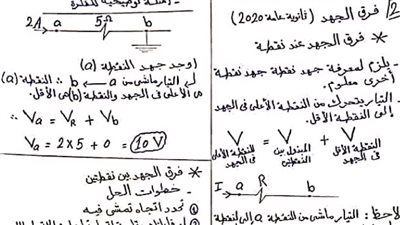 2 فرق الجهد (ثانوية عامة 2020)
* فرق الجهد عند نقطة
- يلزم لمعرفة جهد نقطة جهد نقطة
أخرى معلوم.
- التيار يتحرك من النقطة الأعلى في الجهد
إلى النقطة الأقل.
V = V + V
للنقطة الأعلى في الجهد
المنقول بين النقطتين
النقطة الأقل في الجهد
I a R b
لاحظ: التيار ماشي من النقطة a إلى النقطة
أمثلة توضيحية للفكرة
2A a 5Ω b
أوجد جهد النقطة (a)
التيار ماشي من a ← b ∴ النقطة (a)
هي الأعلى في الجهد والنقطة (b) هي الأقل.
∴ Va = VR + Vb
Va = 2 x 5 + 0 = 10 V
* فرق الجهد بين نقطتين
- خطوات الحل
① نحدد اتجاه تمشي فيه